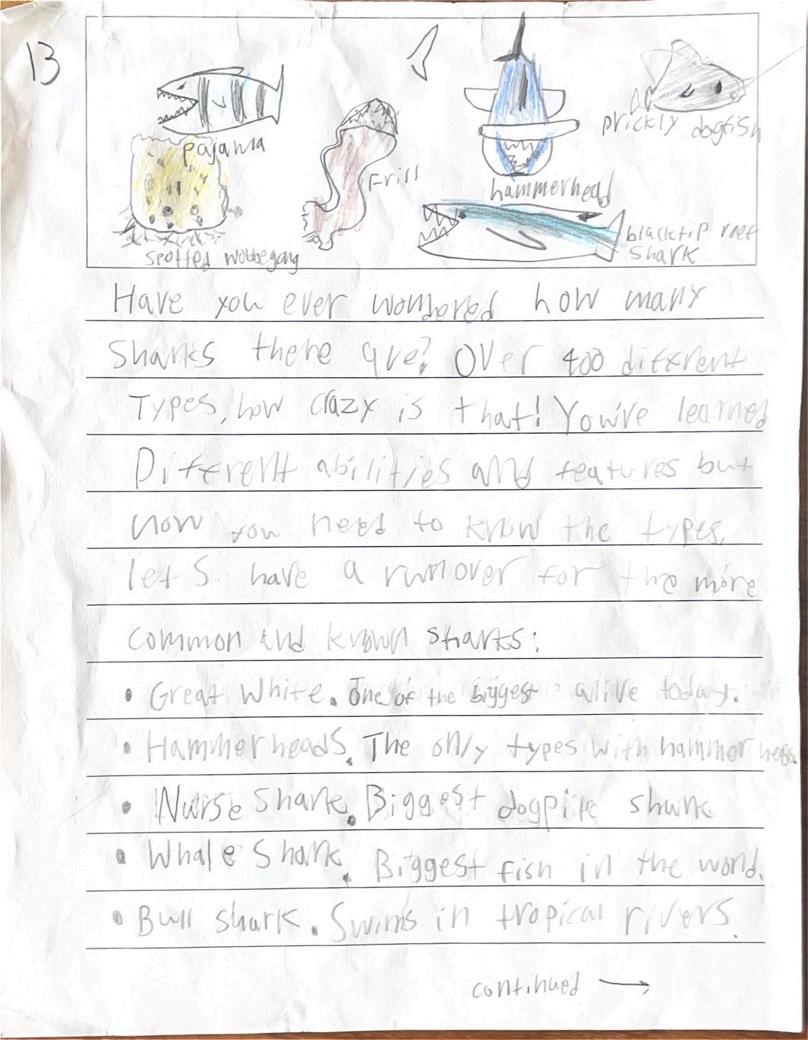 13
pajama
Frill
hammerhead
prickly dogfish
spotted wobbegong
blacktip reef
shark
Have you ever wondered how many
Sharks there are? Over 400 different
Types, how crazy is that! You've learned
Different abilities and features but
now you need to know the types,
let's have a runover for the more
common and known sharks:
• Great White. One of the biggest alive today.
• Hammerheads. The only types with hammer heads.
• Nurse Shark. Biggest dogpile shark
• Whale Shark. Biggest fish in the world.
• Bull shark. Swims in tropical rivers.
continued →